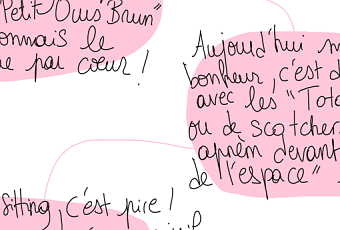 Petit Ours Brun"
onnais le
e par cœur !
Aujourd'hui m
bonheur, c'est d
avec les "Toto
ou de scotcher
aprèm devant
de l'espace"
sitting, c'est pire !